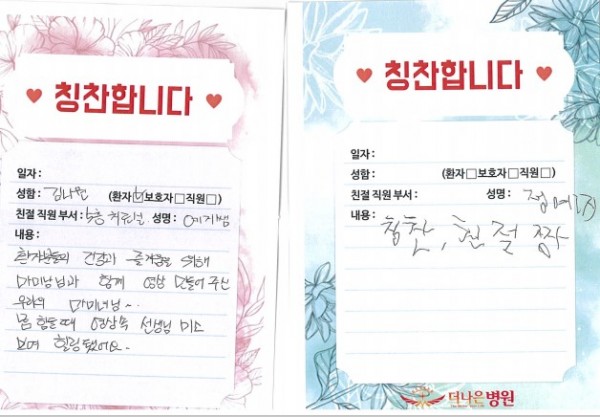 칭찬합니다
일자 :
성함 : 김나현 (환자☑보호자□직원□)
친절 직원 부서 : 5층 치료실 성명 : 예지쌤
내용 :
환자분들의 건강과 즐거움을 위해
마미남님과 함께 영상 만들어 주신
우리의 마미녀님~
몸 힘들때 영상속 선생님 미소
보며 힐링됐어요~
칭찬합니다
일자 :
성함 : (환자□보호자□직원□)
친절 직원 부서 : 성명 : 정예지
내용 :
칭찬, 친절 짱
더나은병원